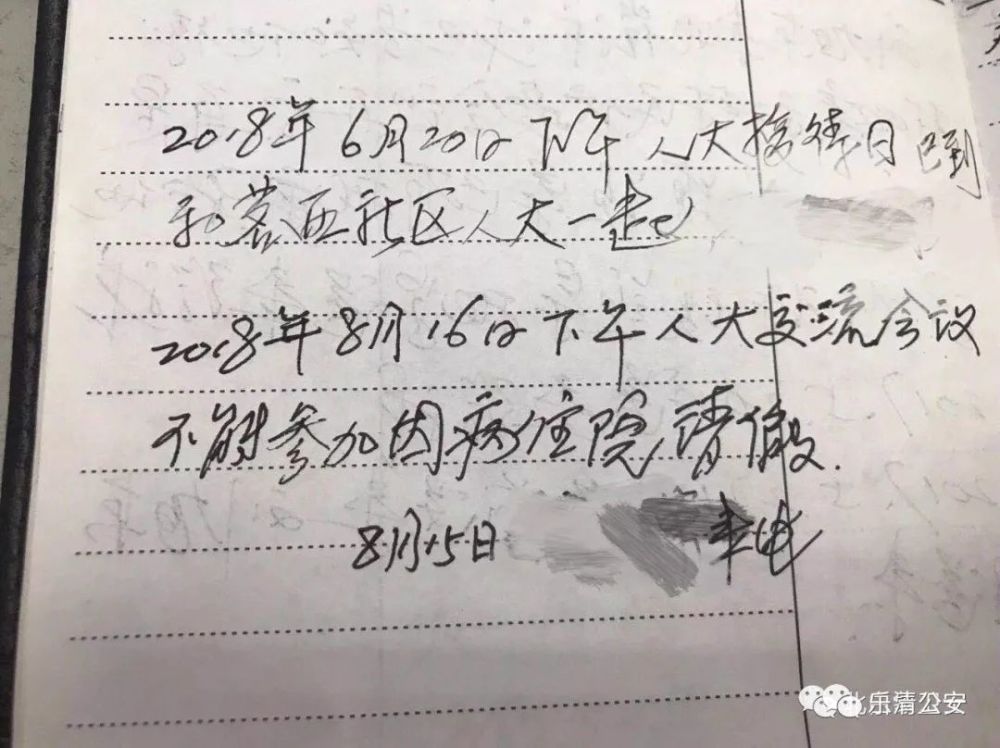 2018年6月20日下午人大接待日已到
和蓉西社区人大一起
2018年8月16日下午人大交流会议
不能参加因病住院,请假.
8月15日 来电
北乐清公安